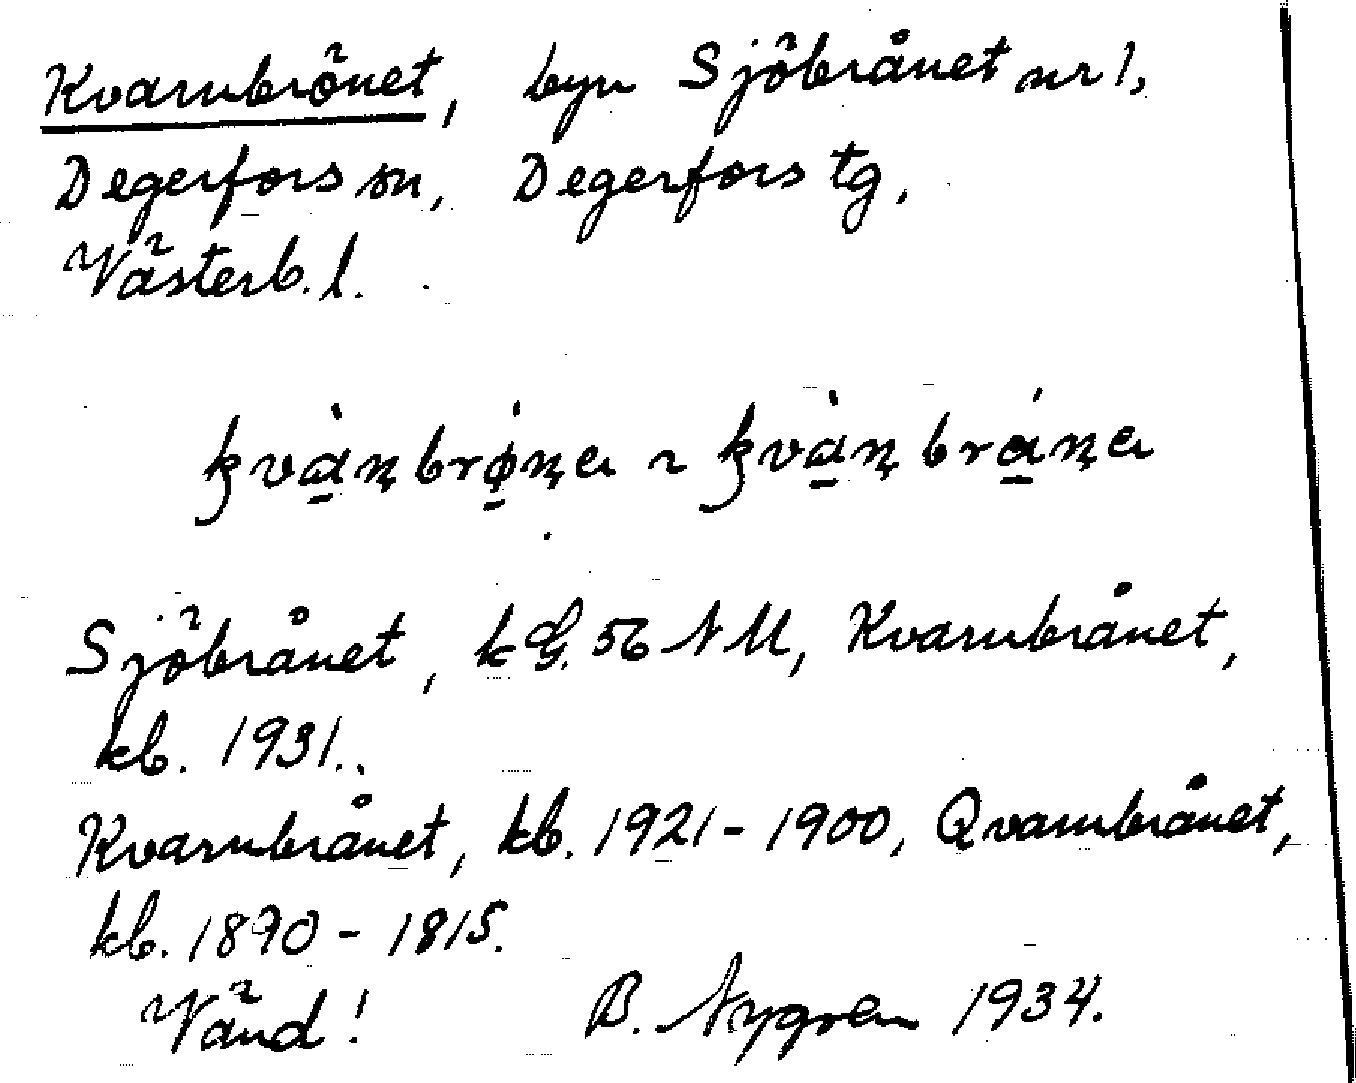 Kvarnbrönet, byn Sjöbrånet nr 1,
Degerfors sn, Degerfors tg,
Västerb. l.
kvànbrǿna ~ kvànbrána
Sjöbrånet, kG. 56 NM, Kvarnbrånet,
kb. 1931.
Kvarnbrånet, kb. 1921-1900, Qvarnbrånet,
kb. 1890-1815.
Vänd! B. Nygren 1934.